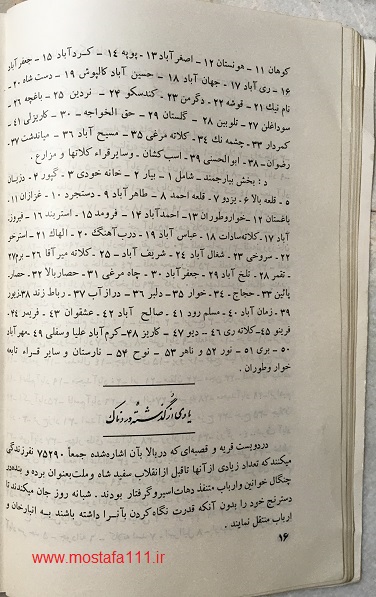 کوهان ۱۱ ـ هونستان ۱۲ ـ اصغرآباد ۱۳ ـ پوپه ۱۴ ـ کردآباد ۱۵ ـ جعفرآباد
۱۶ ـ ری‌آباد ۱۷ ـ جهان آباد ۱۸ ـ حسین آباد کالپوش ۱۹ ـ دست شاه ۲۰ ـ
نام نیك ۲۱ ـ قوشه ۲۲ ـ دگرمن ۲۳ ـ کندسکو ۲۴ ـ نردین ۲۵ ـ باغچه ۲۶ ـ
سوداغلن ۲۷ ـ تلوبین ۲۸ ـ گلستان ۲۹ ـ حق الخواجه ـ ۳۰ ـ کاریزلی ۳۱ ـ
کمردار ۳۳ ـ چشمه نك ۳۴ ـ کلاته مرغی ۳۵ ـ مسیح آباد ۳۶ ـ میاندشت ۳۷
رضوان ـ ۳۸ ـ ابوالحسنی ۳۹ ـ اسب کشان ـ وسایر قراء کلاتها و مزارع .
د : بخش بیارجمند ـ شامل ۱ ـ بیار ۲ ـ خانه خودی ۳ ـ گیور ۴ ـ دزیان
۵ ـ قلعه بالا ۶ ـ یزدو ۷ ـ قلعه احمد ۸ ـ طاهرآباد ۹ ـ دستجرد ۱۰ ـ غزازان ۱۱
باغستان ۱۲ ـ خوار و طوران ۱۳ ـ احمدآباد ۱۴ ـ فرومد ۱۵ ـ استربند ۱۶ ـ فیروز
آباد ۱۷ ـ کلاته سادات ۱۸ ـ عباس آباد ۱۹ ـ درب آهنگ ۲۰ ـ الهاك ۲۱ ـ
۲۲ ـ سروخی ۲۳ ـ شغال آباد ۲۴ ـ شریف آباد ـ ۲۵ ـ کلاته میر آقا ۲۶ ـ برم ۲۷
تقمر ۲۸ ـ تلخ آباد ۲۹ ـ جعفرآباد ۳۰ ـ چاه مرغی ۳۱ ـ حصاربالا ۳۲ ـ حصار
پائین ۳۳ ـ حجاج ۳۴ ـ خوار ۳۵ ـ دلبر ۳۶ ـ درازآب ۳۷ ـ رباط زند ۳۸ ـ زیور
۳۹ ـ زمان آباد ۴۰ ـ مسلم رود ۴۱ ـ صالح آباد ۴۲ ـ عشقوان ۴۳ ـ فریمر ۴۴
فرینو ۴۵ ـ کلاته ری ۴۶ ـ دیو ۴۷ ـ کاریز ۴۸ ـ کرم آباد علیا وسفلی ۴۹ ـ مهرآباد
۵۰ ـ بری ۵۱ ـ نور ۵۲ و ناهر ۵۳ ـ نوح ۵۴ ـ نارستان و سایر قراء تابعه
خوار و طوران .
یادی از گذشته دردناک
دردویست قریه و قصبه‌ای که دربالا بآن اشاره‌شده جمعاً ۷۵۲۹۰ نفرزندگی
میکنند که تعداد زیادی از آنها تاقبل از انقلاب سفید شاه و ملت بعنوان برده و بنده در
چنگال خوانین وارباب متنفذ دهات اسیر و گرفتار بودند . شبانه روز جان میکندند تا
دسترنج خود را بدون آنکه قدرت نگاه کردن بآنرا داشته باشند بـه انبار خان و
ارباب منتقل نمایند .
۱۶
www.mostafa111.ir